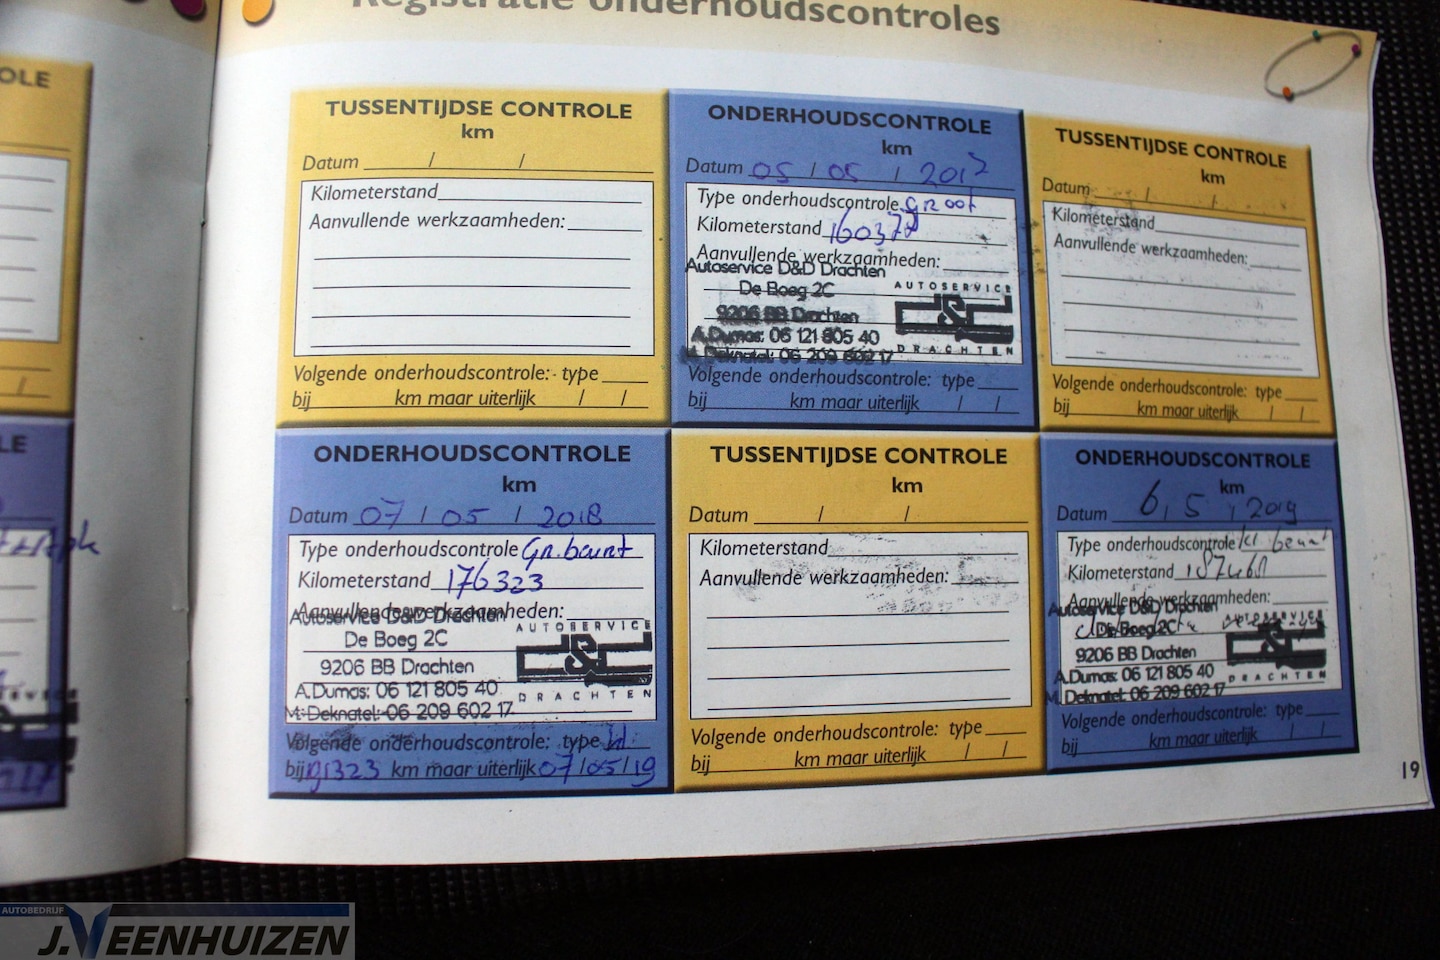 Registratie onderhoudscontroles
TUSSENTIJDSE CONTROLE
km
Datum / /
Kilometerstand
Aanvullende werkzaamheden:
Volgende onderhoudscontrole: type
bij km maar uiterlijk / /
ONDERHOUDSCONTROLE
km
Datum 05 / 05 / 2017
Type onderhoudscontrole Groot
Kilometerstand
Aanvullende werkzaamheden:
Autoservice D&D Drachten
De Boeg 2C
9206 BB Drachten
A.Dumas: 06 121 805 40
M. Deknatel: 06 209 602 17
AUTOSERVICE
D&D
DRACHTEN
Volgende onderhoudscontrole: type
bij km maar uiterlijk / /
TUSSENTIJDSE CONTROLE
km
Datum / /
Kilometerstand
Aanvullende werkzaamheden:
Volgende onderhoudscontrole: type
bij km maar uiterlijk / /
ONDERHOUDSCONTROLE
km
Datum 07 / 05 / 2018
Type onderhoudscontrole Gr. beurt
Kilometerstand 176323
Aanvullende werkzaamheden:
Autoservice D&D Drachten
De Boeg 2C
9206 BB Drachten
A.Dumas: 06 121 805 40
M. Deknatel: 06 209 602 17
AUTOSERVICE
D&D
DRACHTEN
Volgende onderhoudscontrole: type kl
bij km maar uiterlijk 07/05/19
TUSSENTIJDSE CONTROLE
km
Datum / /
Kilometerstand
Aanvullende werkzaamheden:
Volgende onderhoudscontrole: type
bij km maar uiterlijk / /
ONDERHOUDSCONTROLE
km
Datum 6, 5, 2019
Type onderhoudscontrole kl beurt
Kilometerstand
Aanvullende werkzaamheden:
Autoservice D&D Drachten
De Boeg 2C
9206 BB Drachten
A.Dumas: 06 121 805 40
M. Deknatel: 06 209 602 17
AUTOSERVICE
D&D
DRACHTEN
Volgende onderhoudscontrole: type
bij km maar uiterlijk / /
19
AUTOBEDRIJF
J.VEENHUIZEN